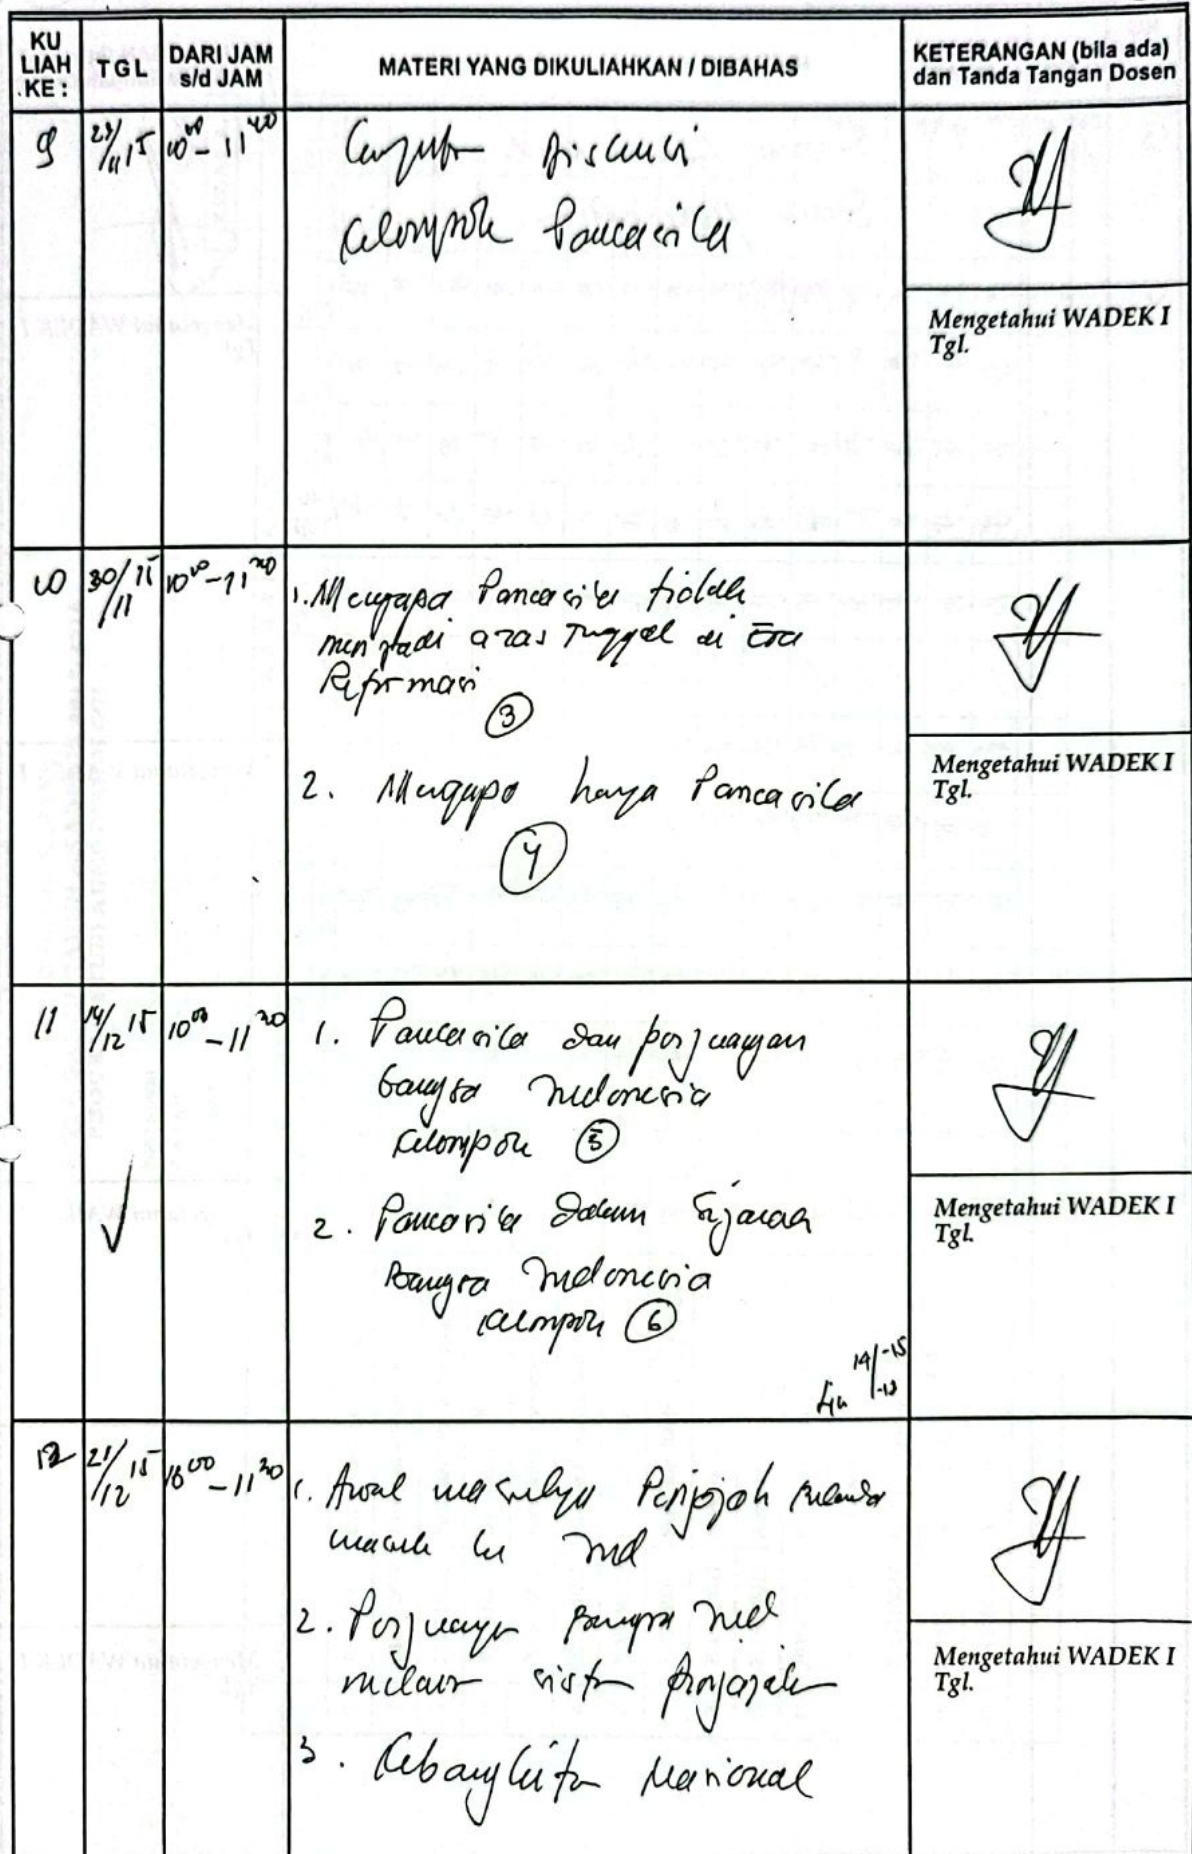 KU LIAH .KE :
TGL
DARI JAM s/d JAM
MATERI YANG DIKULIAHKAN / DIBAHAS
KETERANGAN (bila ada) dan Tanda Tangan Dosen
9 11 15 10 00 - 11 40
Lanjutan Diskusi
Kelompok Pancasila
Mengetahui WADEK I
Tgl.
10 30/11 15 10 00 - 11 20
1. Mengapa Pancasila tidak
menjadi azas Tunggal di Era
Reformasi
3
2. Mengapa hanya Pancasila
4
Mengetahui WADEK I
Tgl.
11 14/12 15 10 00 - 11 20
1. Pancasila dan perjuangan
bangsa Indonesia
Kelompok 5
2. Pancasila dalam Sejarah
Bangsa Indonesia
Kelompok 6
Mengetahui WADEK I
Tgl.
12 21/12 15 10 00 - 11 20
1. Awal masuknya Penjajah Belanda
masuk ke Ind
2. Perjuangan Bangsa Ind
melawan sistem penjajahan
3. Kebangkitan Nasional
Mengetahui WADEK I
Tgl.